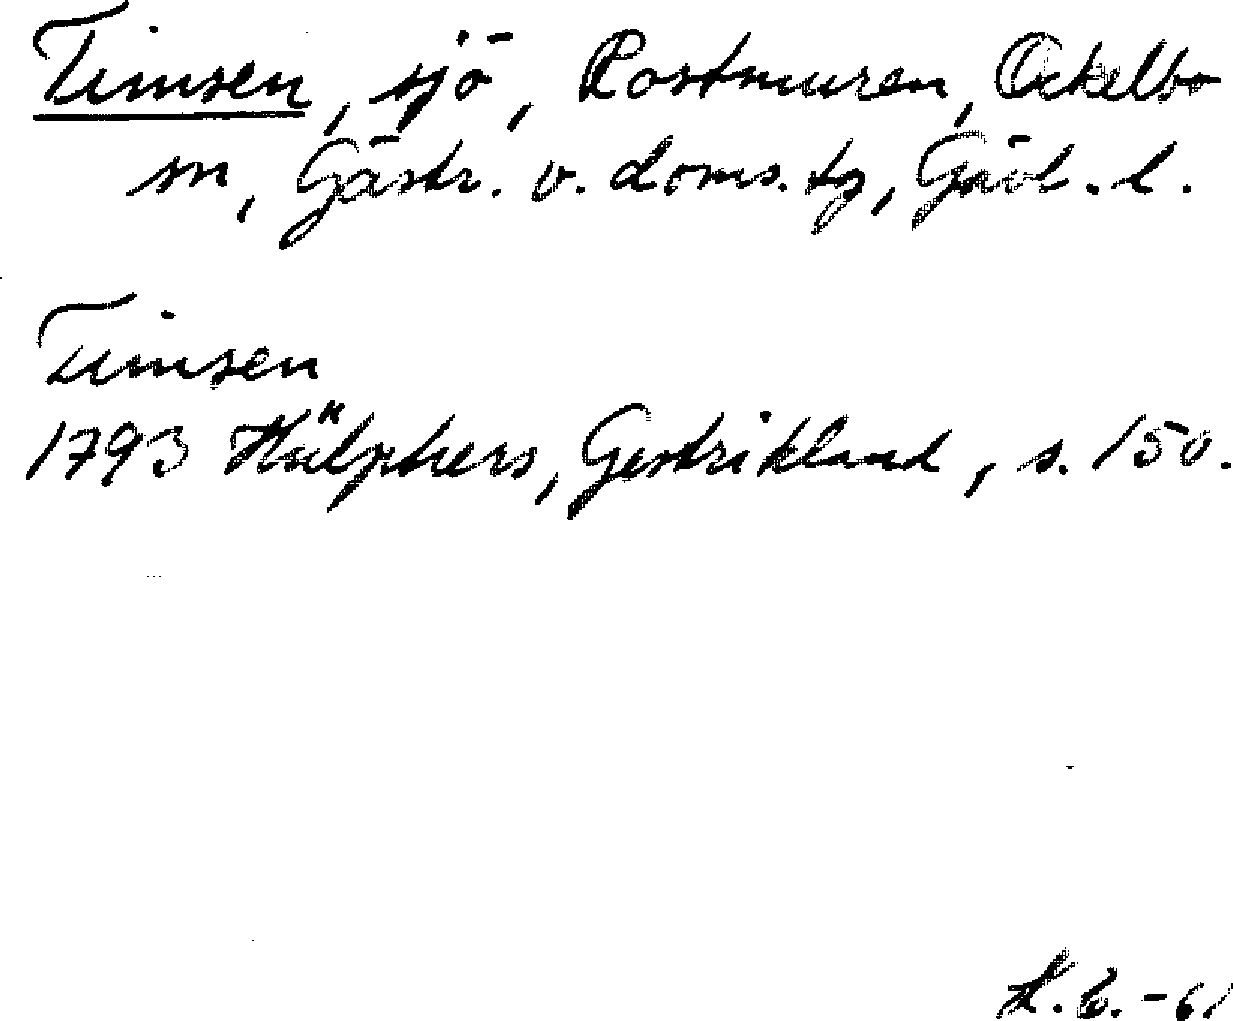 Timsen, sjö, Rostmuren, Ockelbo
sn, Gästr. v. doms. tg, Gävl. l.
Timsen
1793 Hülphers, Gestrikland, s. 150.
H. B. -61